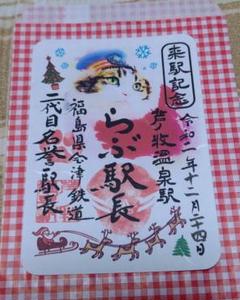 来駅記念
令和二年十二月二十四日
芦ノ牧温泉駅
らぶ駅長
福島県会津鉄道
二代目名誉駅長